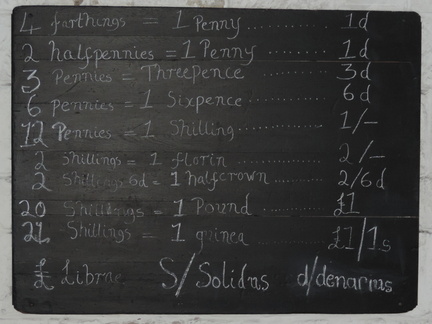 4 farthings = 1 Penny ........ 1d
2 halfpennies = 1 Penny ........ 1d
3 Pennies = Threepence ........ 3d
6 Pennies = 1 Sixpence ........ 6d
12 Pennies = 1 Shilling ........ 1/–
2 Shillings = 1 florin ........ 2/–
2 Shillings 6d = 1 halfcrown ........ 2/6d
20 Shillings = 1 Pound ........ £1
21 Shillings = 1 guinea ........ £1/1s
£ Librae S/Solidus d/denarius